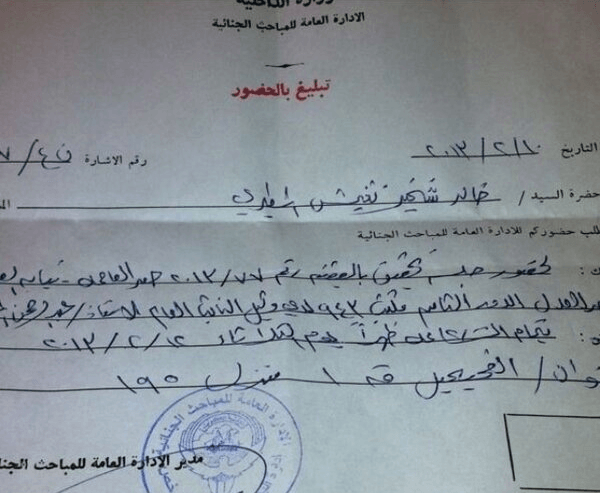 وزارة الداخلية
الادارة العامة للمباحث الجنائية
تبليغ بالحضور
التاريخ ٢٠١٣/٢/١٠ رقم الاشارة
حضرة السيد / خالد شخير
طلب حضوركم للادارة العامة للمباحث الجنائية
لحضور جلسة تحقيق بالقضية رقم ٢٠١٣/٧٧ حصر العاصمة - نيابة
العدل الدور الثامن مكتب ٩٤٣ لدى وكيل النائب العام الاستاذ /
بتمام الساعة ظهراً يوم الثلاثاء ٢٠١٣/٢/١٢
الفحيحيل ق ١ منزل ١٩٥
الادارة العامة للمباحث الجنائية
مدير الادارة العامة للمباحث الجنا